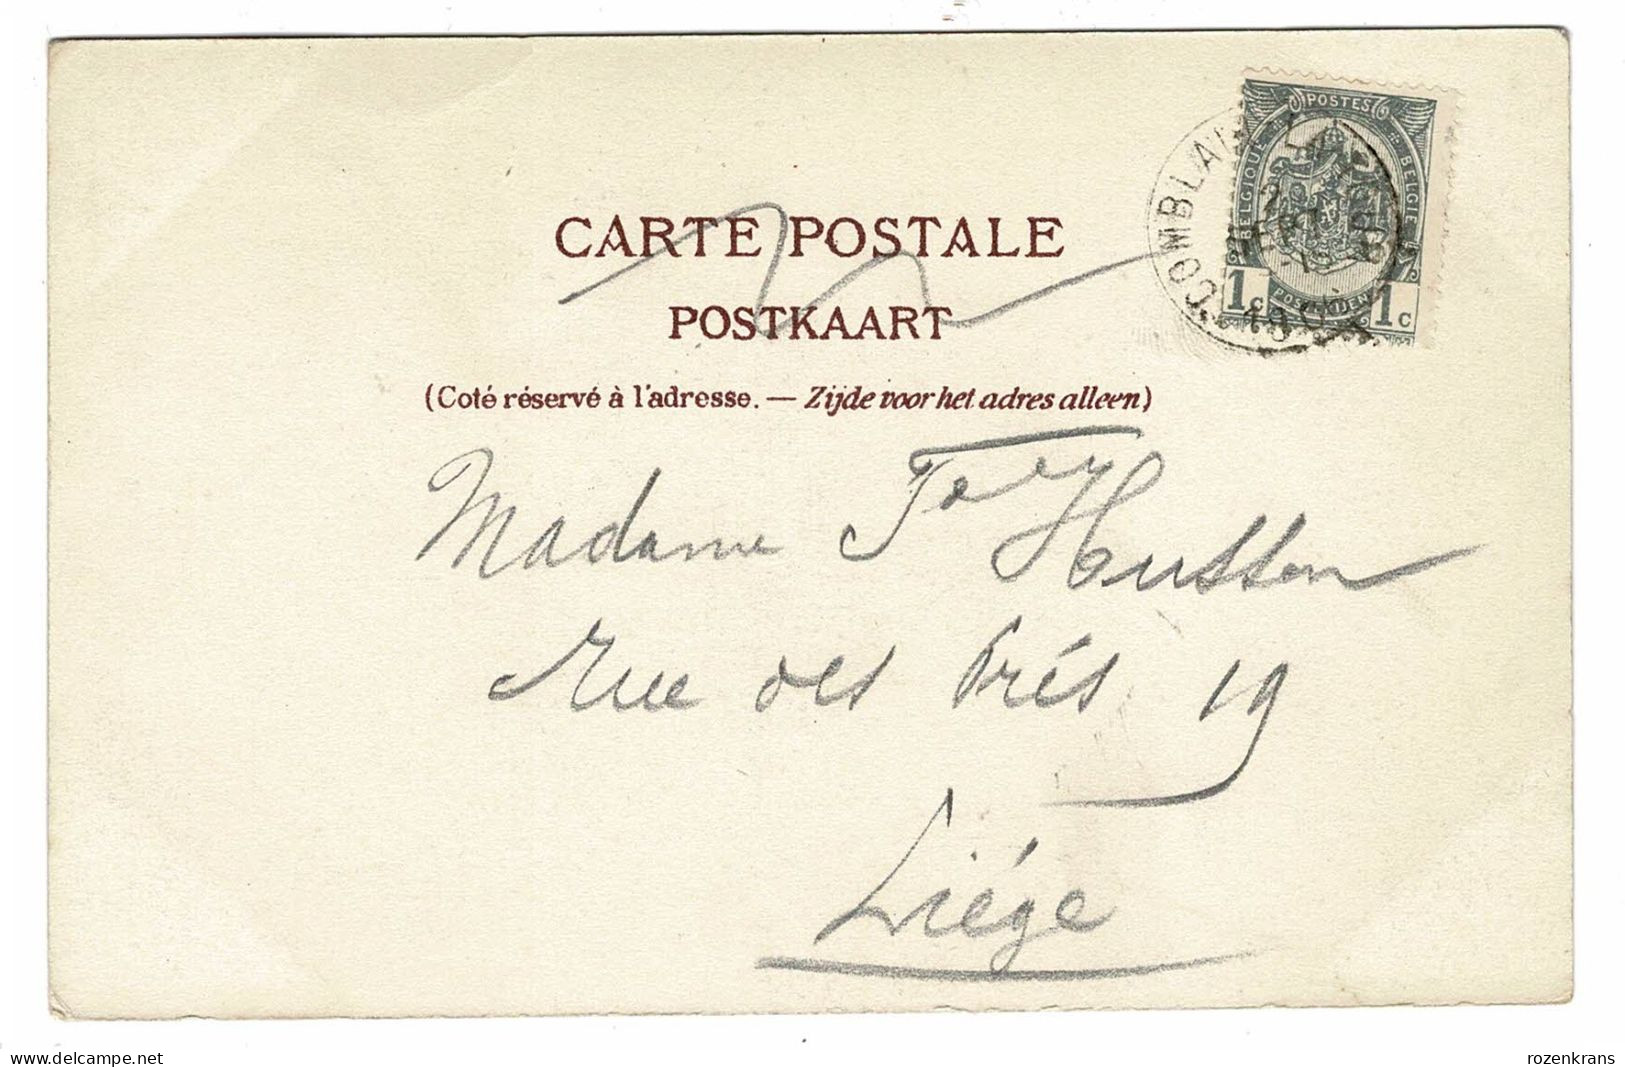 POSTES
BELGIQUE
BELGIE
1c
1c
COMBLAIN
CARTE POSTALE
POSTKAART
(Coté réservé à l'adresse. — Zijde voor het adres alleen)
Madame Husson
Rue des Prés 19
Liége
www.delcampe.net
rozenkrans